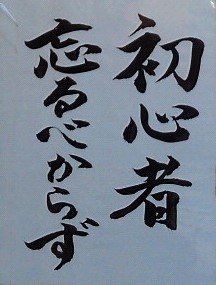 初心者
忘るべからず